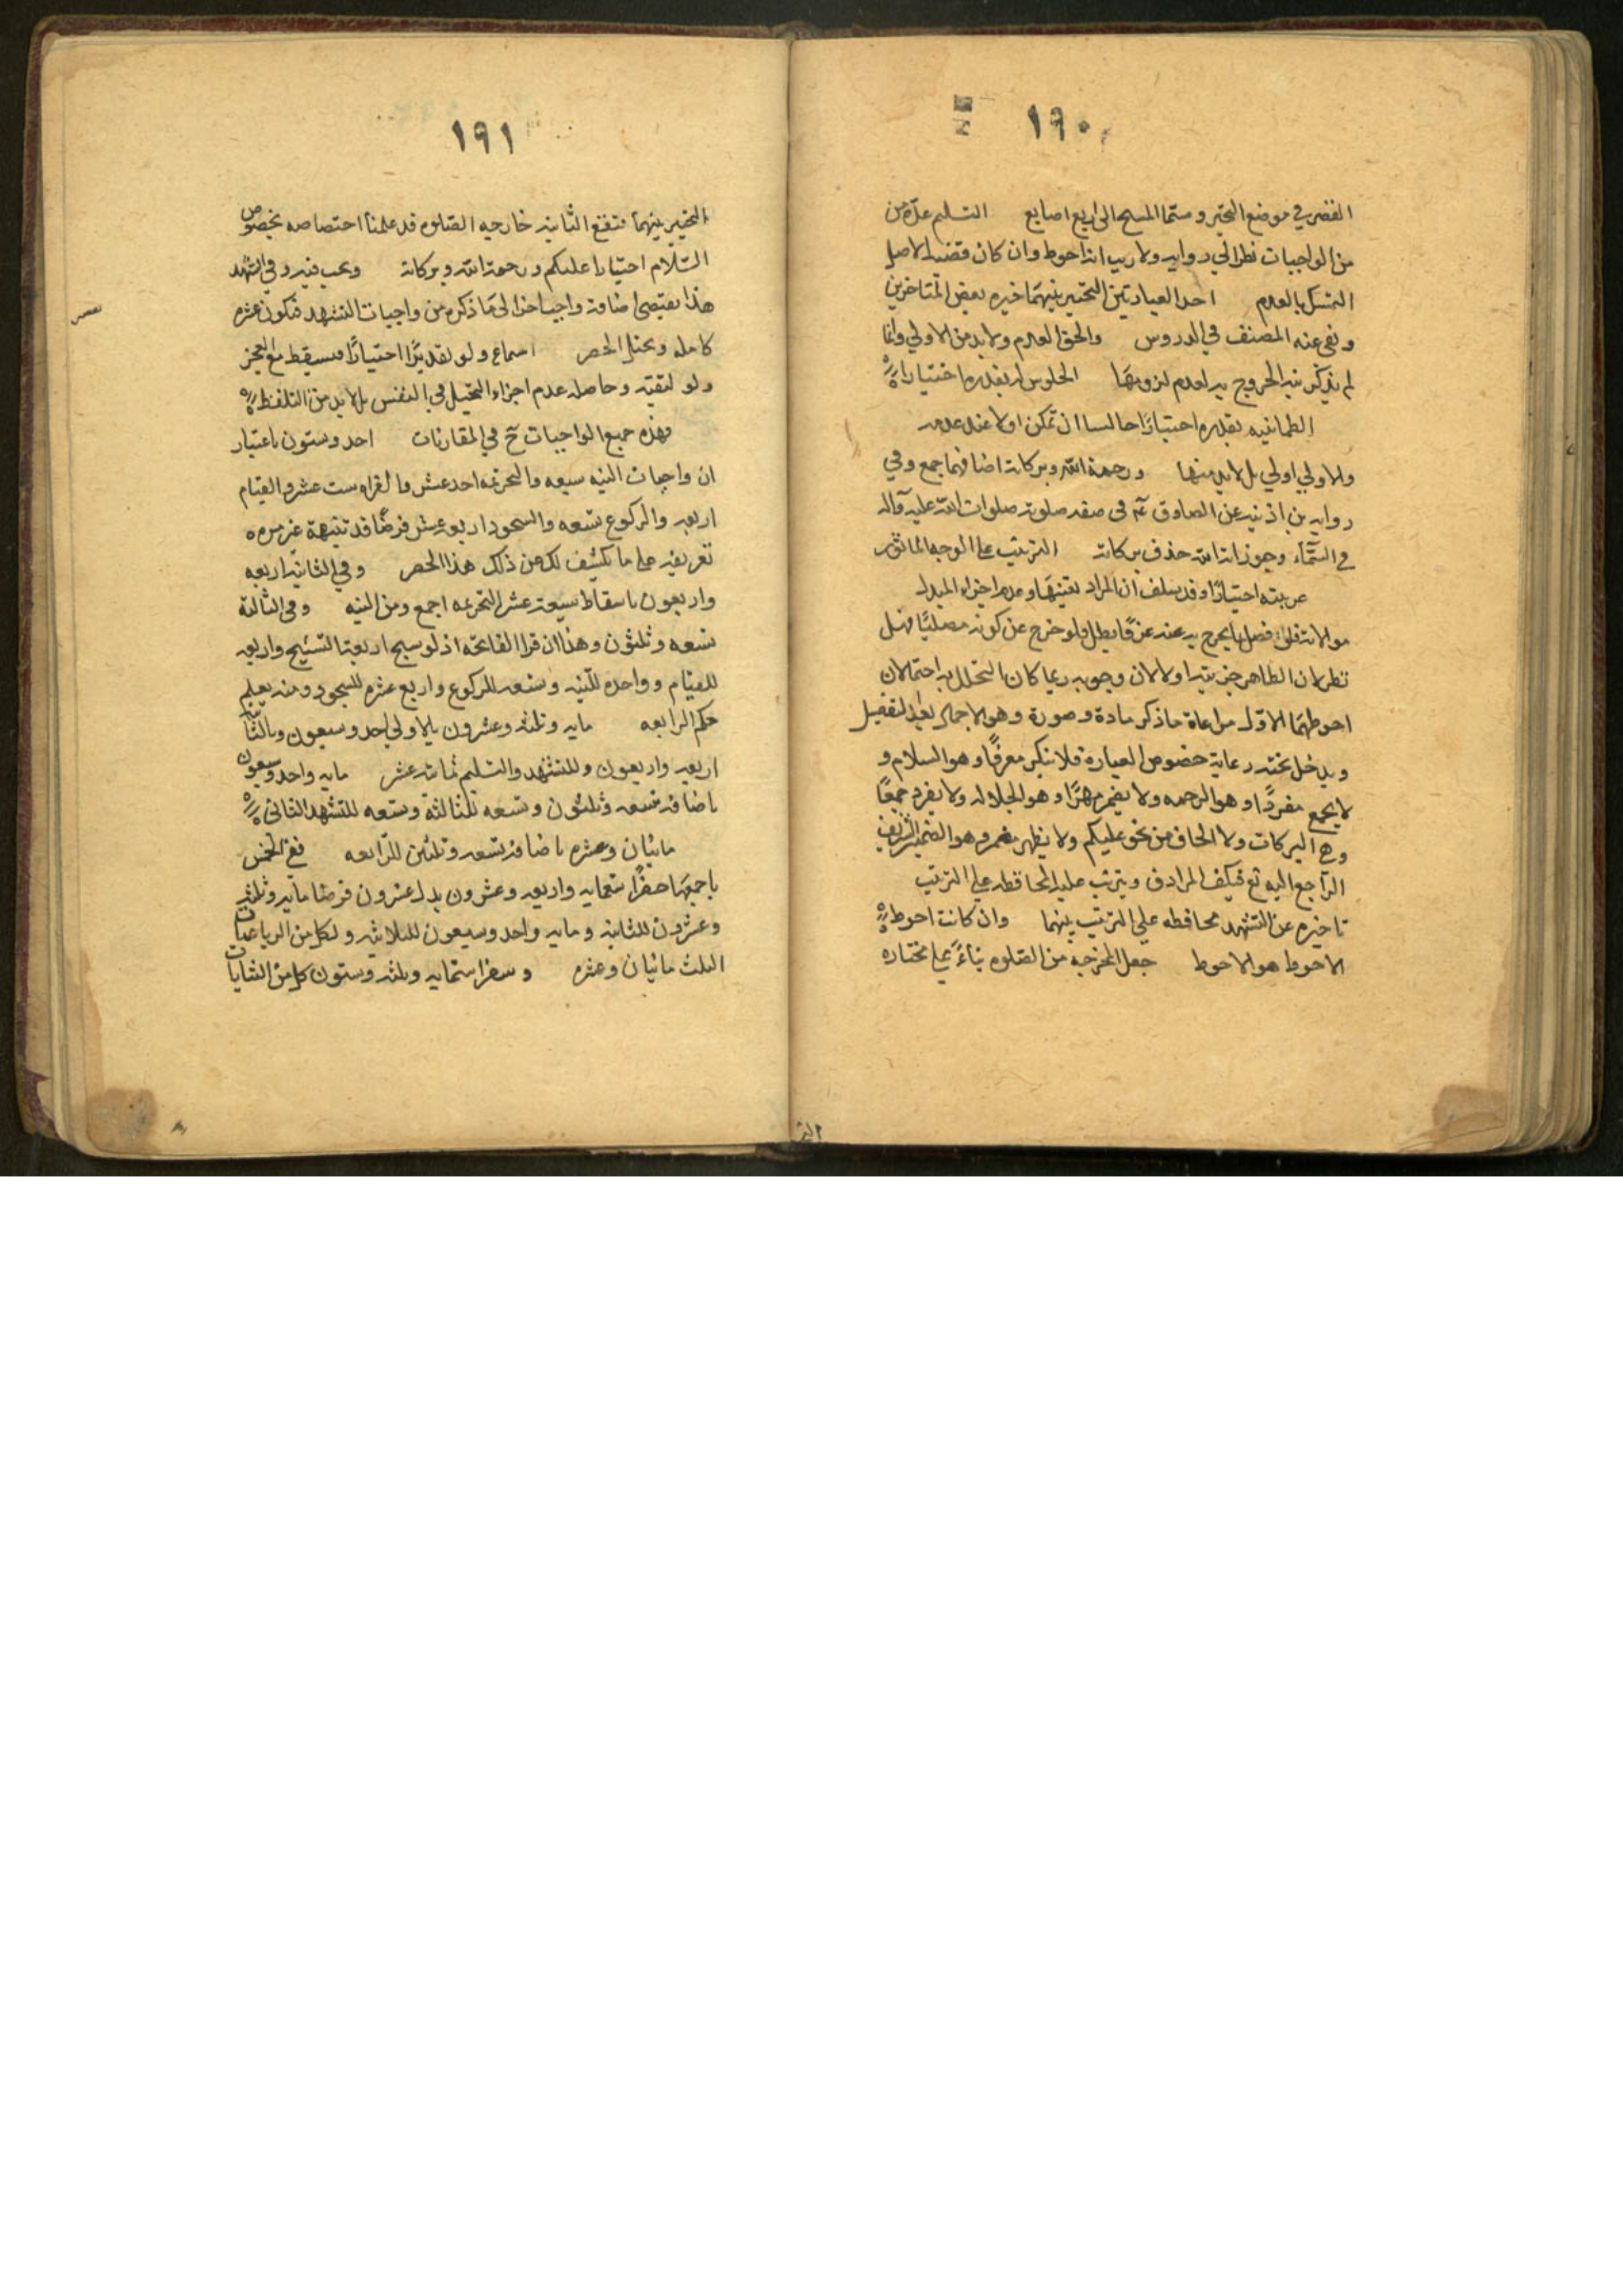 ١٩٠
القصر في موضع التخير و ستما المسح الى اربع اصابع التسليم عدّه من
من الواجبات نظرا الي روايه ولا ريب انه احوط وان كان قضية الاصل
التمسك بالعدم احد العبارتين التخيير بينهما خيره بعض المتاخرين
ونفى عنه المصنف في الدروس والحق العدم ولا بد من الاولي وانما
لم يذكر نية الخروج به لعدم لزومها الجلوس له بقدره اختيارا
الطمانينه بقدره اختيارًا جالسا ان تمكن اولا عند عدمه
والاولي اولي بل لا بد منها ورحمة الله وبركاته اضافهما جمع وفي
روايه بن اذنيه عن الصادق عم في صفه صلوته صلوات الله عليه وآله
في السّمآء وجوز انه الله حذف بركاته الترتيب على الوجه الماثور
عربيته اختيارًا وقد سلف ان المراد تعينها وعدم اجزاء المبدل
موالاته فلو فصل بما يخرج به عنه عرفًا بطل ولو خرج عن كونه مصليًا فهل
نظر لان الظاهر جزئيته اولا لان وجوبه ربما كان التحلل به احتمالان
احوطهما الاوّل مراعاة ما ذكر مادة وصورة وهو الاجمال بعد التفصيل
ويدخل تحته رعاية خصوص العبارة فلا ينكر معرفًا وهو السلام و
لا يجمع مفردًا وهو الرحمه ولا يضمر مظهرًا وهو الجلاله ولا يفرد جمعًا
وهي البركات ولا الكاف من نحو عليكم ولا يظهر مضمر وهو الضمير الشريف
الرّاجع اليه تع فيكف المرادف ويترتب عليه المحافظه على الترتيب
تاخيره عن التشهد محافظه على الترتيب بينهما وان كانت احوط
الاحوط هو الاحوط جعل المخرج به من الصلوه بناءً على مختاره
١٩١
التخيير بينهما فتقع الثانيه خارجه الصلوه قد علمنا اختصاصه بخصوص
السّلام اختيارا عليكم ورحمة الله وبركاته ويجب فيه وفي التشهد
هذا يقتضى اضافة واجب اخر الى ما ذكره من واجبات التشهد فتكون عشره
كامله ويختل الحصر اسماع ولو تقديرًا اختيارًا فيسقط مع العجز
ولو لتقيّه وحاصله عدم اجزاء التخيل في النفس بل لا بد من التلفظ
فهذه جميع الواجبات ح في المقارنات احد وستون باعتبار
ان واجبات النيه سبعه والتحريمه احد عشر والقراه ست عشر والقيام
اربعه والركوع تسعه والسجود اربعه عشر فرضًا قد تنبهه غير مره
تعريفه على ما يكشف لك عن ذلك هذا الحصر وفي الثانيه اربعه
واربعون باسقاط سبعة عشر التحريمه اجمع ومن النيه وفي الثالثة
تسعه وثلثون وهذا ان قرا الفاتحه اذ لو سبح اربعة التسبيح واربعه
للقيام وواحده للنيه وتسعه للركوع واربع عشره للسجود ومنه يعلم
حكم الرابعه مايه وثلثه وعشرون بالاولي احد وسبعون وبالثا
اربعه واربعون وللتشهد والتسليم ثمانيه عشر مايه واحد وسبعون
باضافة تسعه وثلثون وتسعه للثالثة وتسعه للتشهد الثاني
مائتان وعشره باضافة تسعه وثلثين للرّابعه ففي الخمس
باجمعها حضرًا تسعمايه واربعه وعشرون بدل عشرون فرضا مايه وثلثه
وعشرون للثنايه ومايه واحد وسبعون للثلاثيه ولكل من الرباعيات
الثلث مائتان وعشره وسفرا ستمايه وثلثه وستون كل من الثنايات